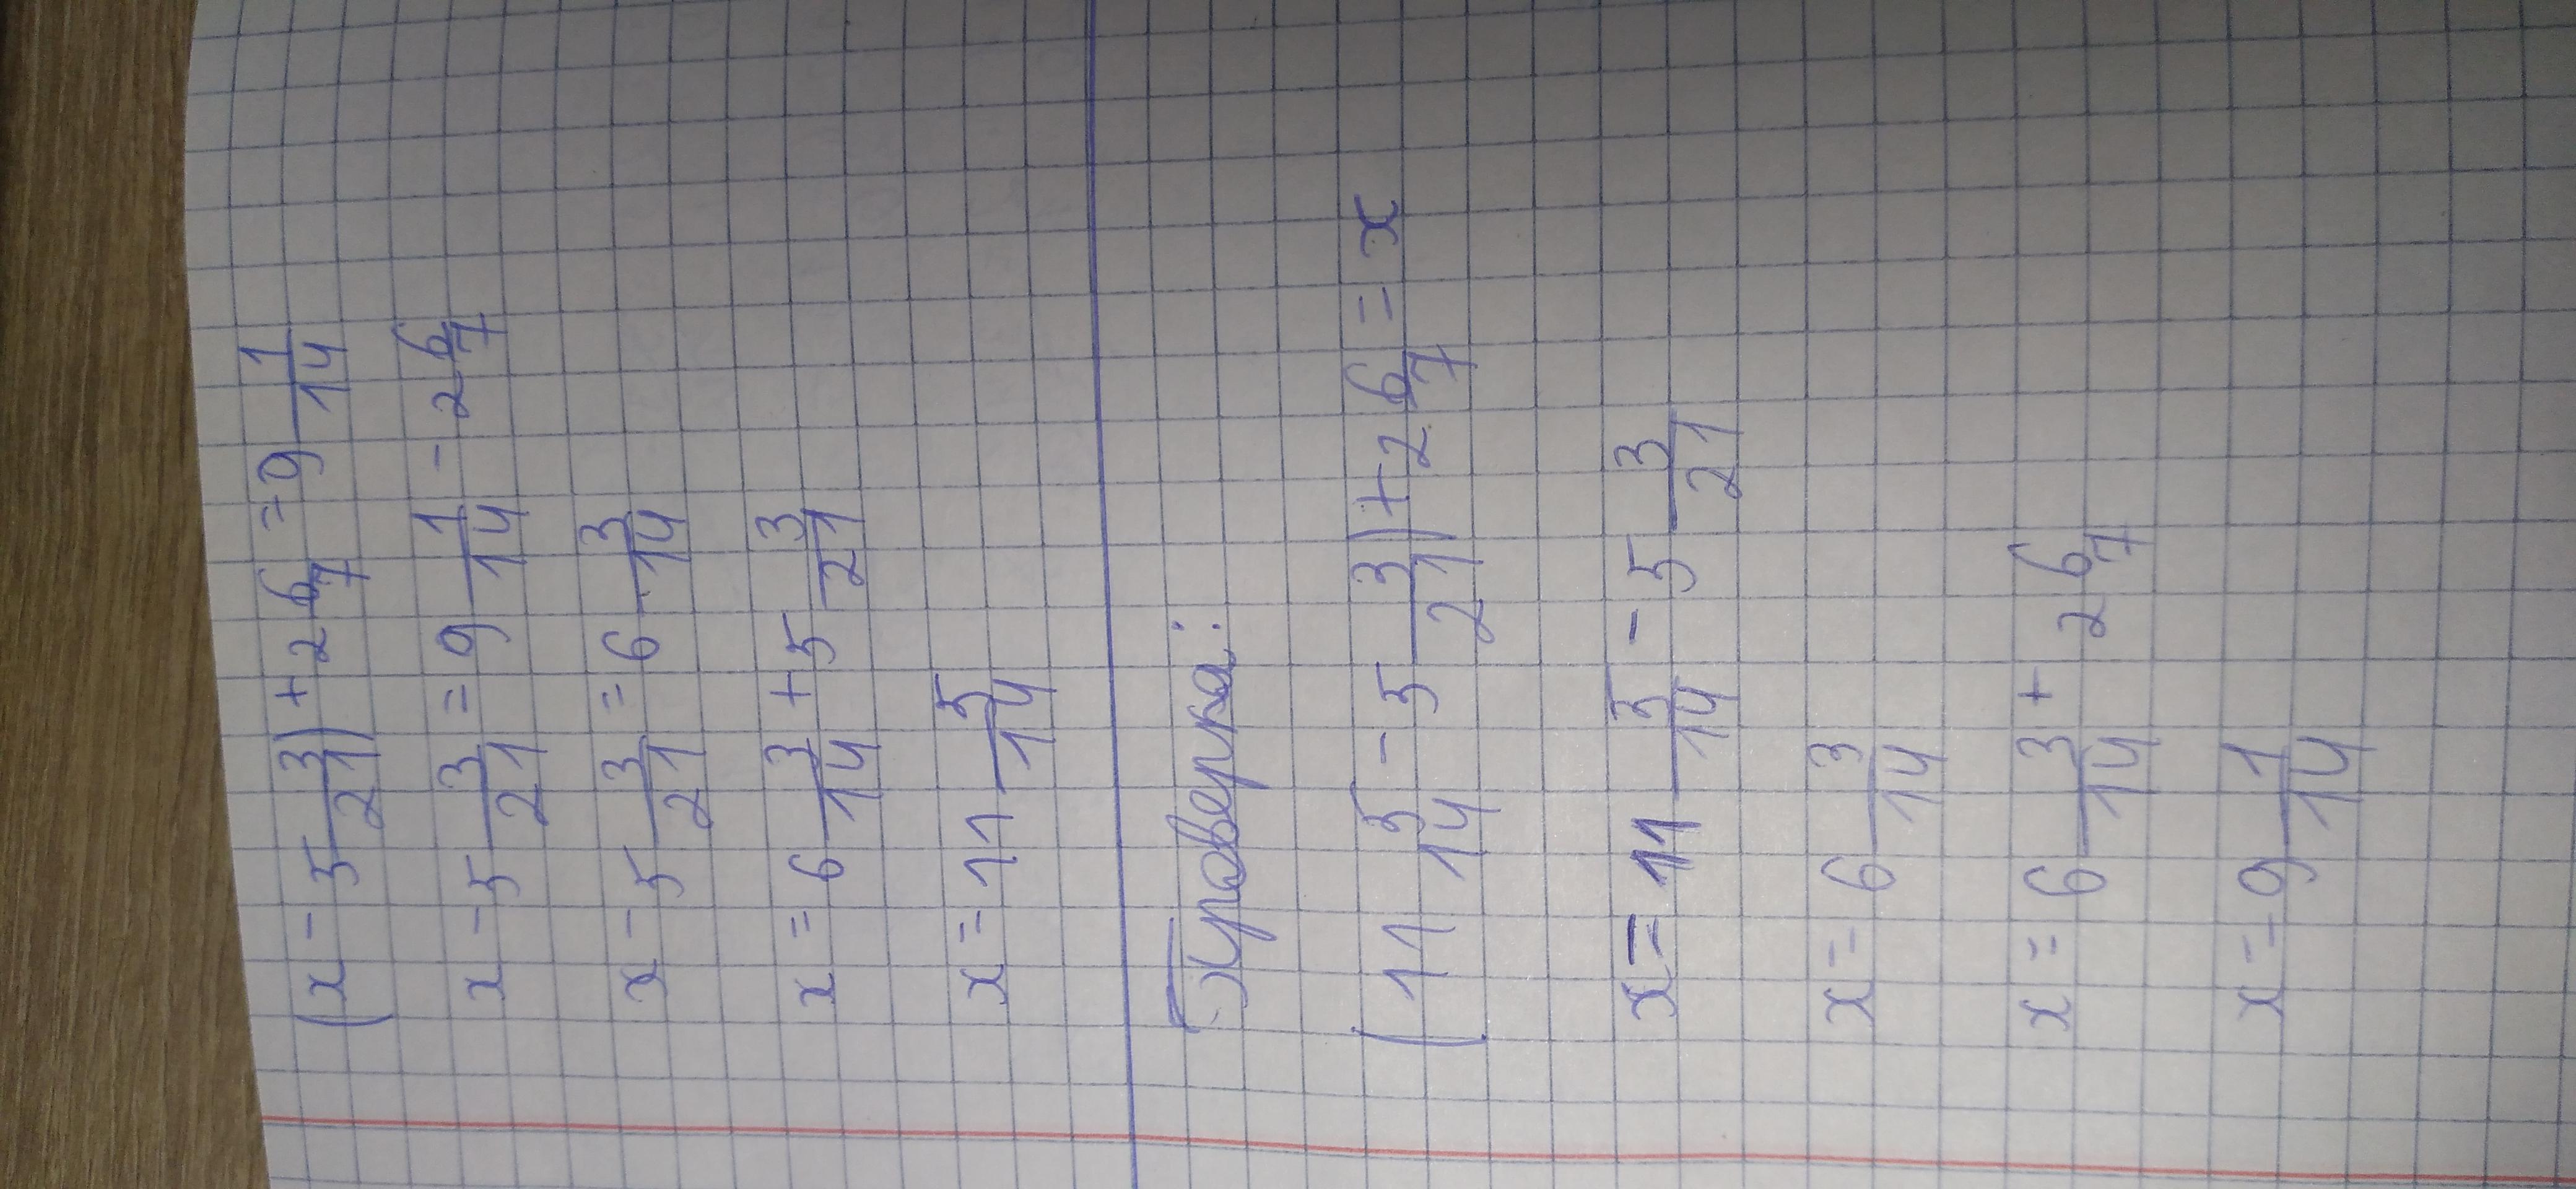 (x - 5 3/21) + 2 6/7 = 9 1/14
x - 5 3/21 = 9 1/14 - 2 6/7
x - 5 3/21 = 6 3/14
x = 6 3/14 + 5 3/21
x = 11 5/14
Проверка:
(11 5/14 - 5 3/21) + 2 6/7 = x
x = 11 5/14 - 5 3/21
x = 6 3/14
x = 6 3/14 + 2 6/7
x = 9 1/14